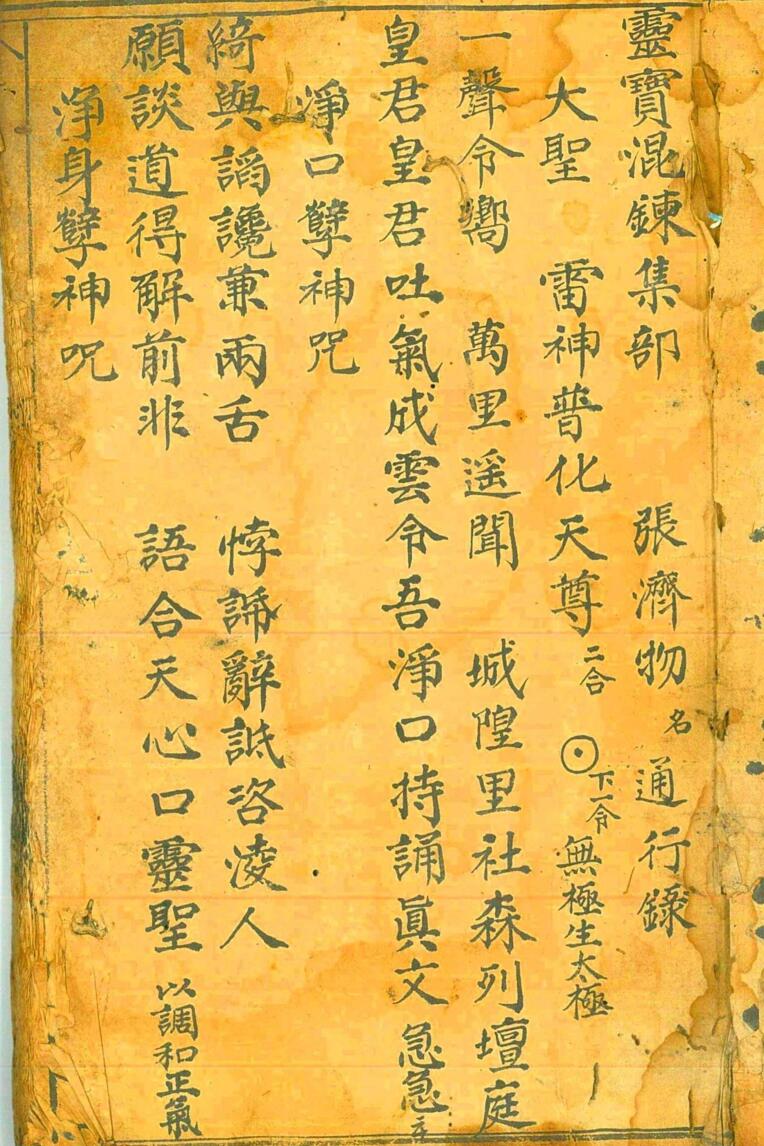 靈寶混鍊集部 張濟物名 通行錄
大聖 雷神普化天尊 二合 下一令 無極生太極
一聲令嚮 萬里遥聞 城隍里社森列壇庭
皇君皇君吐氣成雲令吾淨口持誦眞文急急
淨口孽神咒
綺與謟讒兼兩舌 悖誦辭詆咨淩人
願談道得解前非 語合天心口靈聖 以調和正氣
淨身孽神呪